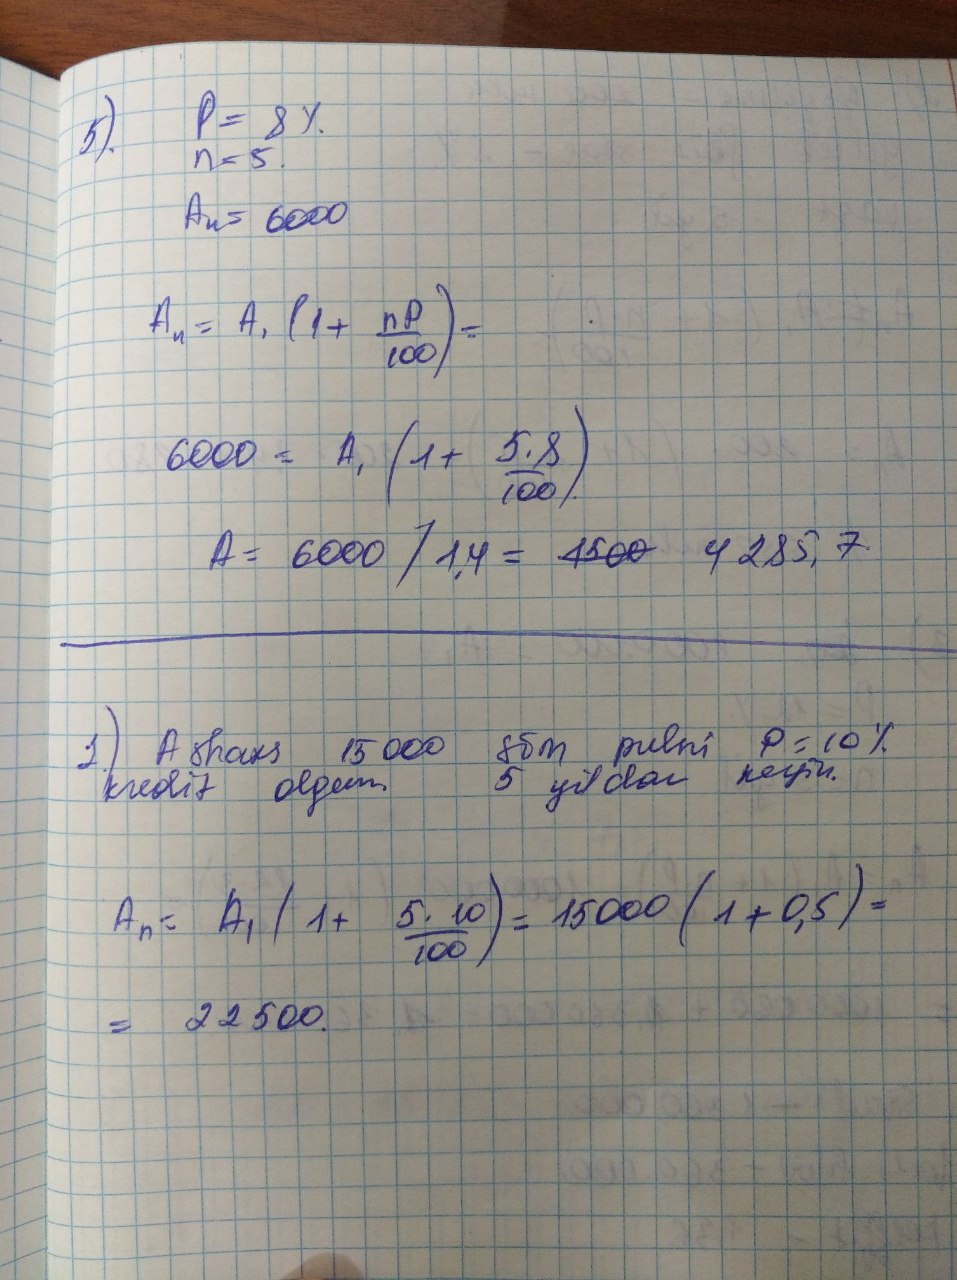 5).
P = 8 %.
n = 5.
Aₙ = 6000
Aₙ = A₁ (1 + nP/100) =
6000 = A₁ (1 + 5·8/100).
A = 6000 / 1,4 = ~~1500~~ 4285,7.
1) A shaxs 15000 som pulni P = 10 %
kredit olgan 5 yildan keyin.
Aₙ = A₁ (1 + 5·10/100) = 15000 (1 + 0,5) =
= 22500.